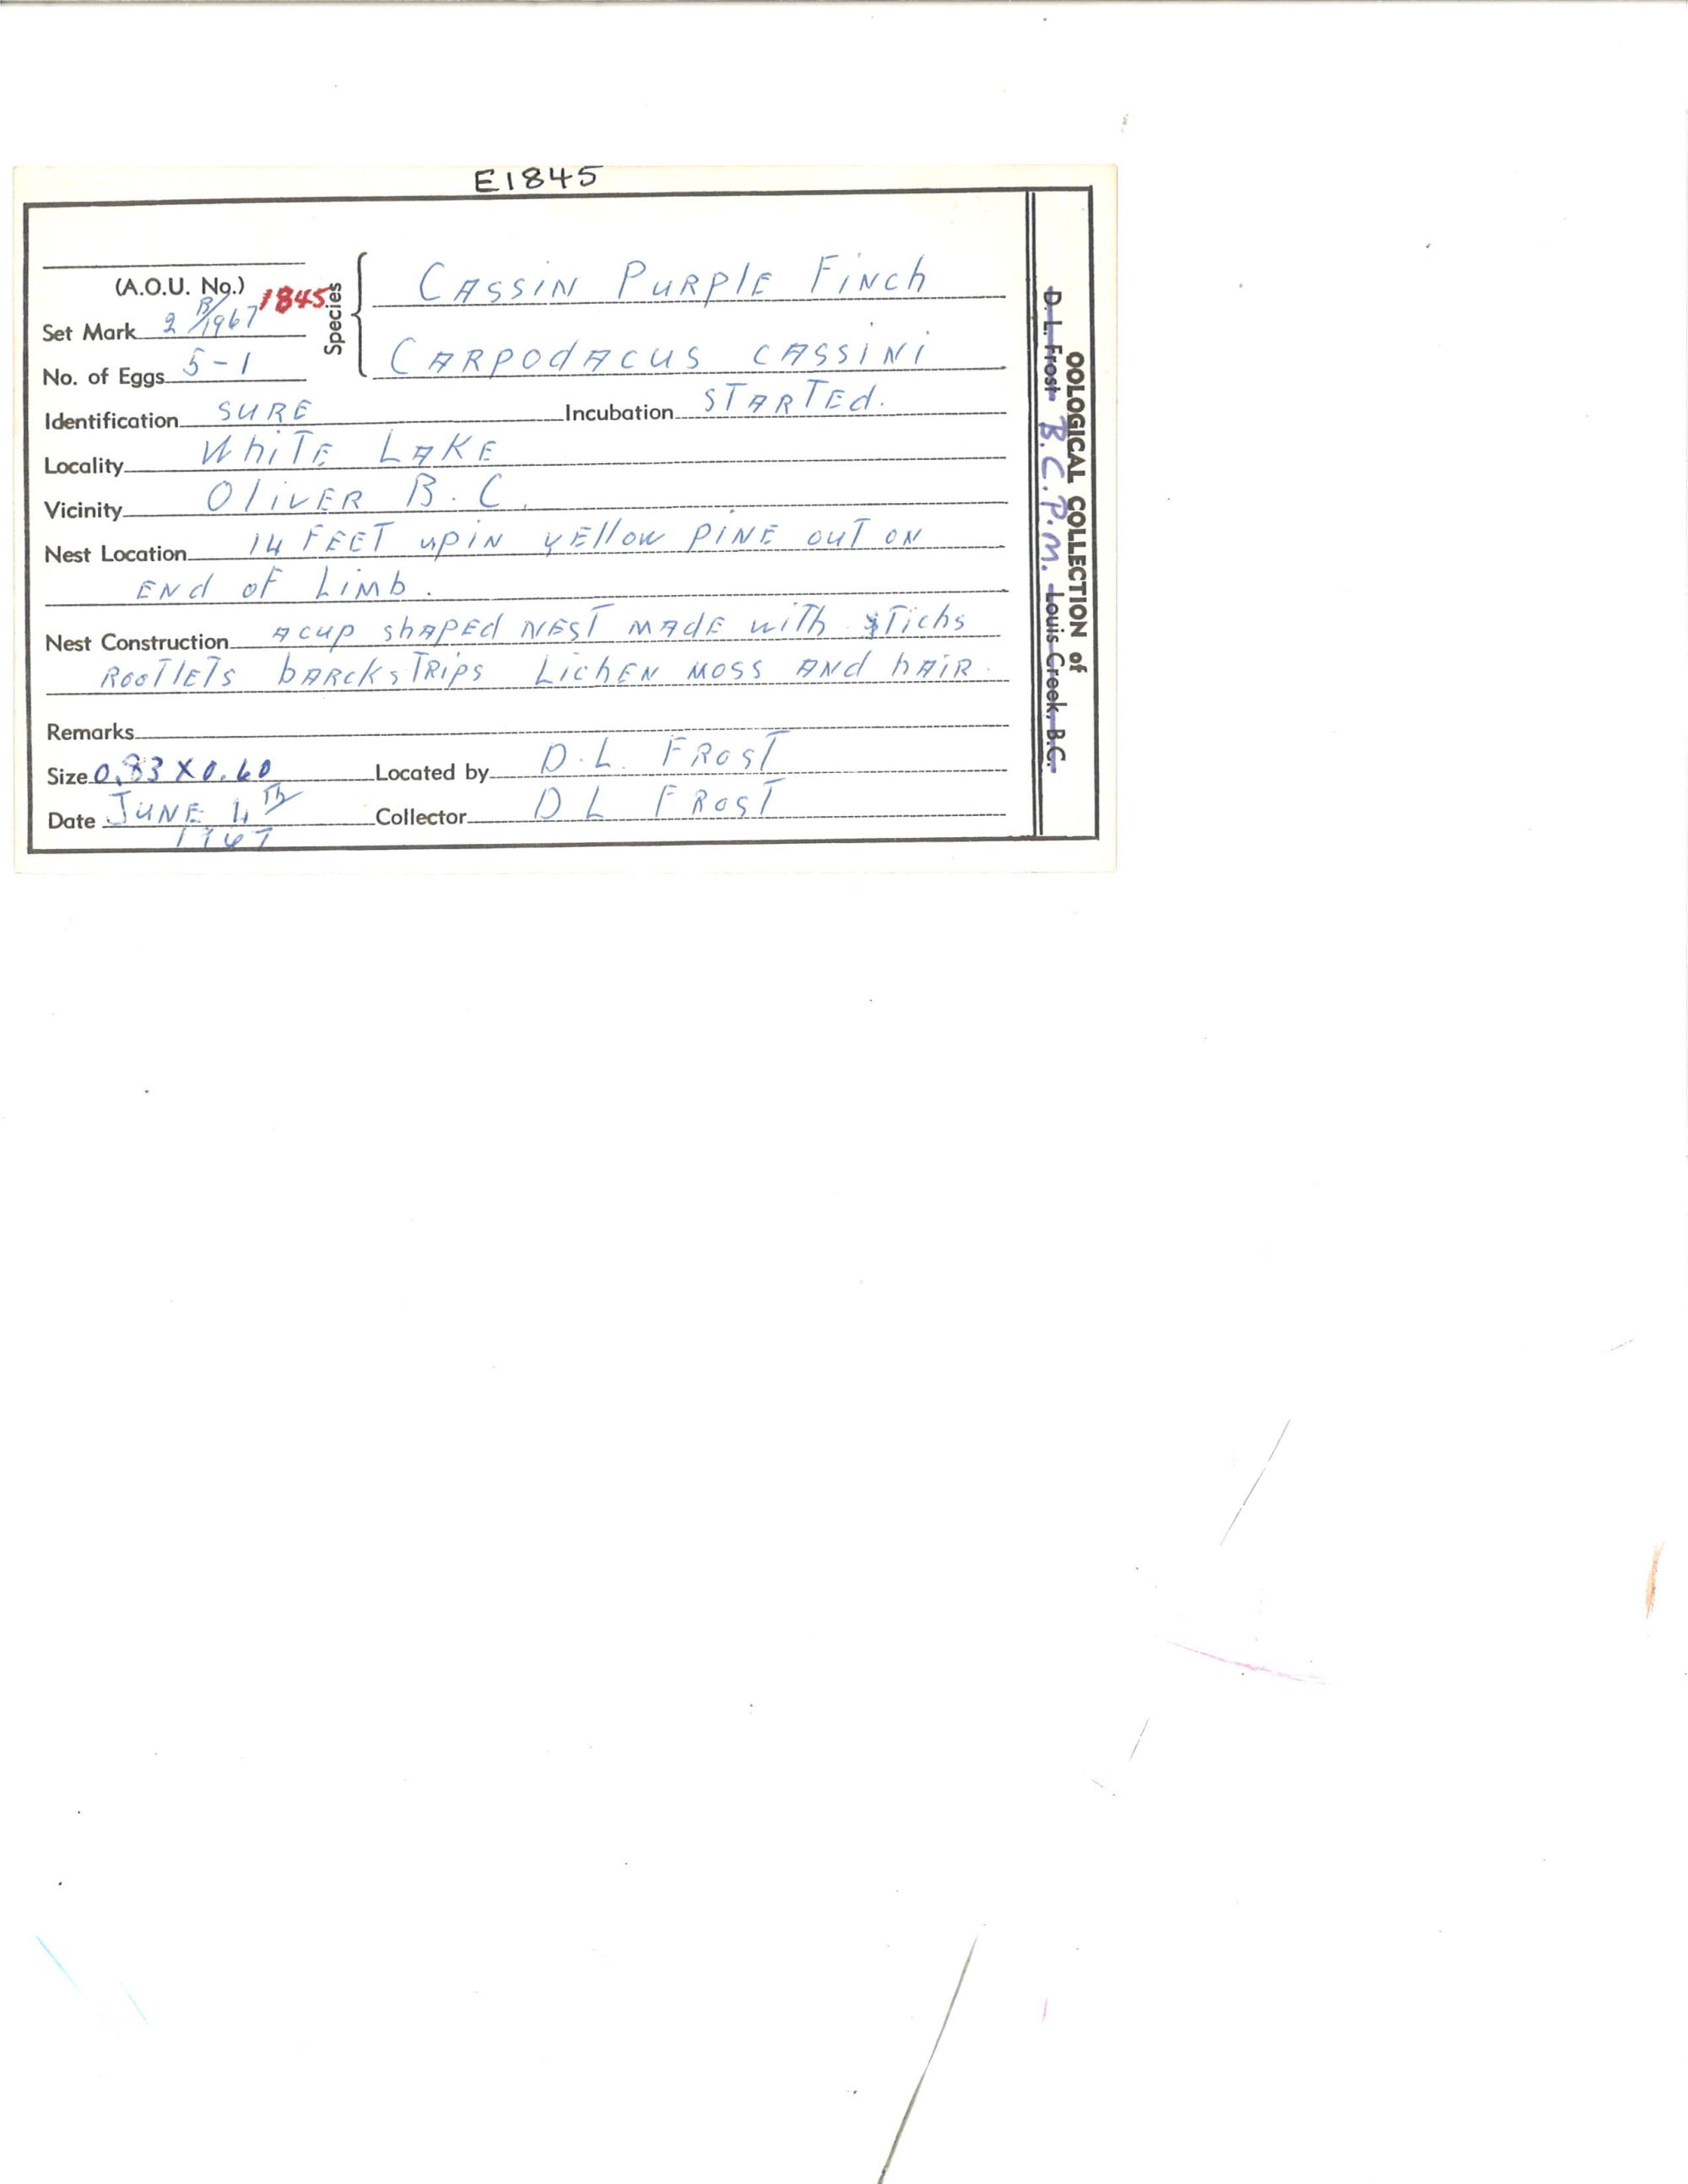 E1845
(A.O.U. No.) 1845
Species { Cassin Purple Finch
Set Mark 2 B/1967
Carpodacus cassini
No. of Eggs 5-1
Identification SURE Incubation STARTEd.
Locality WhiTE LAKE
Vicinity OliVER B.C.
Nest Location 14 FEET upin yEllow PiNE ouT ON
ENd of Limb.
Nest Construction A cup shAPEd NEST MAdE wiTh sTichs
RooTlETs bARck sTRips LichEN Moss ANd hAiR.
Remarks
Size 0.83 X 0.60 Located by D.L. FRosT
Date JUNE Th Collector D L FRosT
1967
OOLOGICAL COLLECTION of
D. L. Frost B.C.P.M. Louis Creek, B.C.